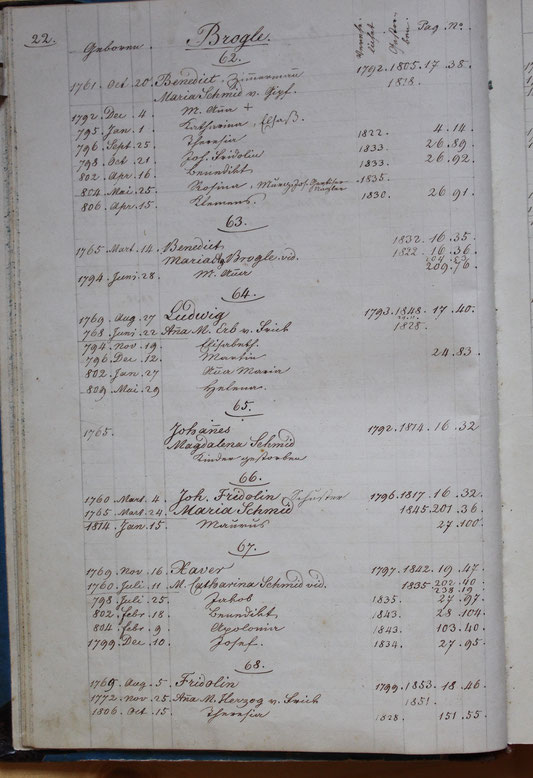 22.
Geboren. Brogle. Pag. No.
62.
1761. Oct. 20. Benedict, Zimmermann 1792. 1805. 17. 38.
Maria Schmid v. Gipf. 1828.
1792. Dec. 4. M. Aña +
795. Jan. 1. Katharina, Elsaß.
796. Sept. 25. Theresia 1822. 4. 14.
798. Oct. 21. Joh. Fridolin 1833. 26. 89.
802. Apr. 16. Benedikt 1833. 26. 92.
804. Mai. 25. Rosina, 1835.
806. Apr. 15. Klemens. 1830. 26 91.
63.
1765. Mart. 14. Benedict, 1832. 16. 35.
Maria Brogle. vid. 1822. 16. 36.
1794. Juni. 28. M. Aña 209. 76.
64.
1769. Aug. 27 Ludwig 1793. 1848. 17. 40.
768. Juni. 22. Aña M. Erb v. Frick 1828.
794. Nov. 19. Elisabeth.
796. Dec. 12. Martin 24. 83.
802. Jan. 27 Aña Maria
809. Mai. 29 Helena.
65.
1765. Johañes 1792. 1814. 16. 32
Magdalena Schmid
Kinder gestorben
66.
1760. Mart. 4. Joh. Fridolin Schuster 1796. 1817. 16. 32.
1765. Mart. 24. Maria Schmid 1845. 201. 36.
1814. Jan. 15. Maurus 27. 100.
67.
1769. Nov. 16. Xaver 1797. 1842. 19. 47.
1760. Juli. 11. M. Catharina Schmid vid. 1835 202. 40.
238. 19
798. Juli. 25. Jakob 1835. 27. 97.
802. Febr. 18 Benedikt 1843. 28. 104.
804. Febr. 9 Apolonia 1843. 103. 40.
1799. Dec. 10. Josef. 1834. 27. 95.
68.
1769. Aug. 5. Fridolin 1799. 1853. 18. 46.
1772. Nov. 25. Aña M. Herzog v. Frick 1851.
1806. Oct. 15. Theresia 1828. 151. 55.